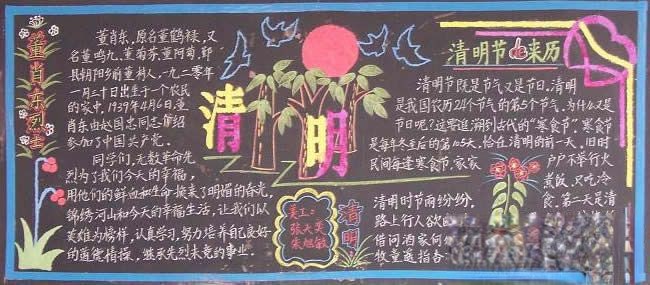 董肖东烈士
董肖东，原名董鹤禄，又
名董鸣九、董菊荪、董阿菊，鄞
县胡阳乡前董村人，一九二零年
一月二十日出生于一个农民
的家中，1939年4月6日，董
肖东由赵国忠同志介绍
参加了中国共产党。
同学们，无数革命先
烈为了我们今天的幸福，
用他们的鲜血和生命换来了明媚的春光，
锦绣河山和今天的幸福生活，让我们以
英雄为榜样，认真学习，努力培养自己良好
的道德情操，继承先烈未竟的事业。
清明
美工：
张天昊
朱旭敏
清明
清明时节雨纷纷，
路上行人欲
借问酒家何
牧童遥指
清明节的来历
清明节既是节气又是节日。清明
是我国农历24个节气的第5个节气，为什么又是
节日呢？这要追溯到古代的“寒食节”，寒食节
是每年冬至后的第105天，恰在清明的前一天，旧时
民间每逢寒食节，家家户户不举行火
煮饭，只吃冷
食。第二天是清